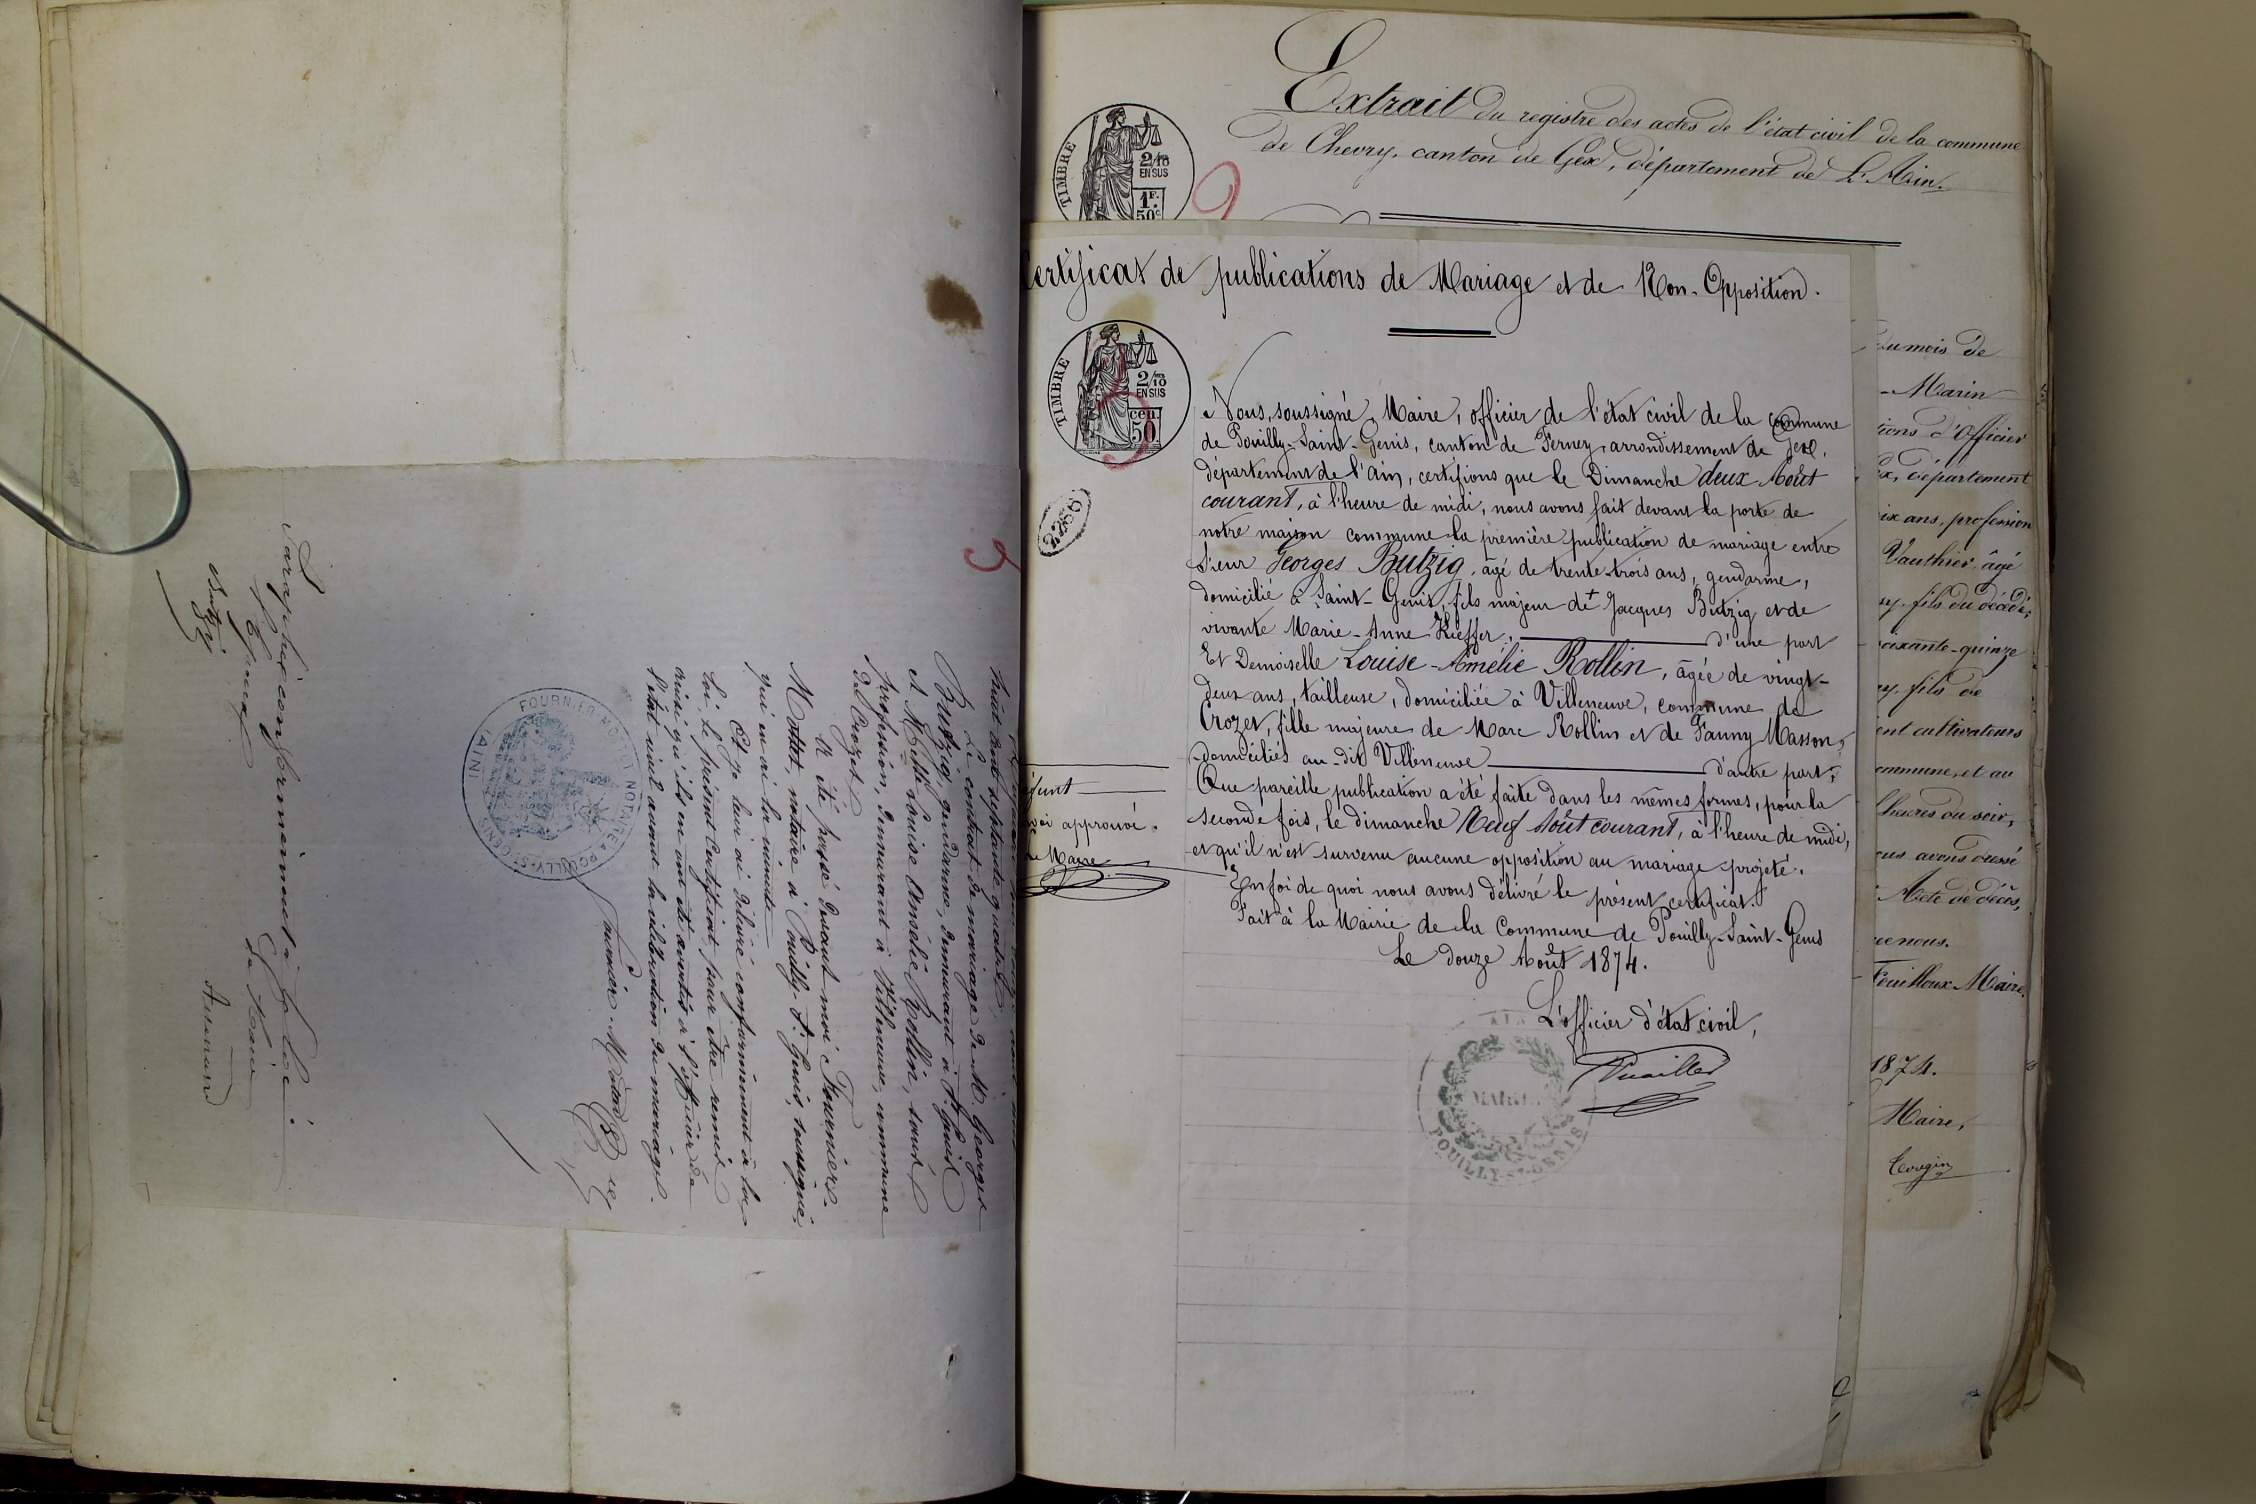 Extrait du registre des actes de l'état civil de la commune
de Chevry, canton de Gex, département de L'Ain.
TIMBRE
2/10
EN SUS
1F.
50c
Certificat de publications de Mariage et de Non-Opposition.
TIMBRE
2/10
EN SUS
cen.
50.
2286
Nous, soussigné, Maire, officier de l'état civil de la Commune
de Pouilly-Saint-Genis, canton de Ferney, arrondissement de Gex,
département de l'Ain, certifions que le Dimanche deux Août
courant, à l'heure de midi, nous avons fait devant la porte de
notre maison commune la première publication de mariage entre
Sieur Georges Butzig, âgé de trente-trois ans, gendarme,
domicilié à Saint-Genis, fils majeur de + Jacques Butzig et de
vivante Marie-Anne Kieffer, d'une part
Et Demoiselle Louise-Amélie Rollin, âgée de vingt-
deux ans, tailleuse, domiciliée à Villeneuve, commune de
Crozet, fille majeure de Marc Rollin et de Fanny Masson,
domiciliés au-dit Villeneuve d'autre part;
Que pareille publication a été faite dans les mêmes formes, pour la
seconde fois, le dimanche Neuf Août courant, à l'heure de midi,
et qu'il n'est survenu aucune opposition au mariage projeté.
En foi de quoi nous avons délivré le présent certificat.
Fait à la Mairie de la Commune de Pouilly-Saint-Genis
Le douze Août 1874.
L'officier d'état civil,
MAIRIE
POUILLY-ST-GENNIS
éfunt
approuvé.
Maire
du mois de
Marin
tions d'Officier
département
ix ans, profession
Vauthier âgé
fils du décédé;
soixante-quinze
fils de
ent cultivateurs
commune, et au
heures du soir,
ous avons dressé
Acte de décès,
nous.
Maire.
1874.
Maire,
Gougin
huit cent soixante quatorze
Le contrat de mariage de M. Georges
Butzig, gendarme, demeurant à St. Genis
et Melle Louise Amélie Rollin, sans
profession, demeurant à Villeneuve, commune
de Crozet
A été passé devant moi Fournier-
Mottet, notaire à Pouilly-St. Genis, soussigné,
qui en ai la minute
Et je leur ai délivré conformément à la
loi, le présent certificat, pour être remis
ainsi qu'ils en ont été avertis à l'officier de
l'état civil avant la célébration du mariage.
FOURNIER-MOTTET NOTAIRE A POUILLY-ST-GENIS
(AIN)
Paraphé conformément à la loi.
Le Maire
Butzig